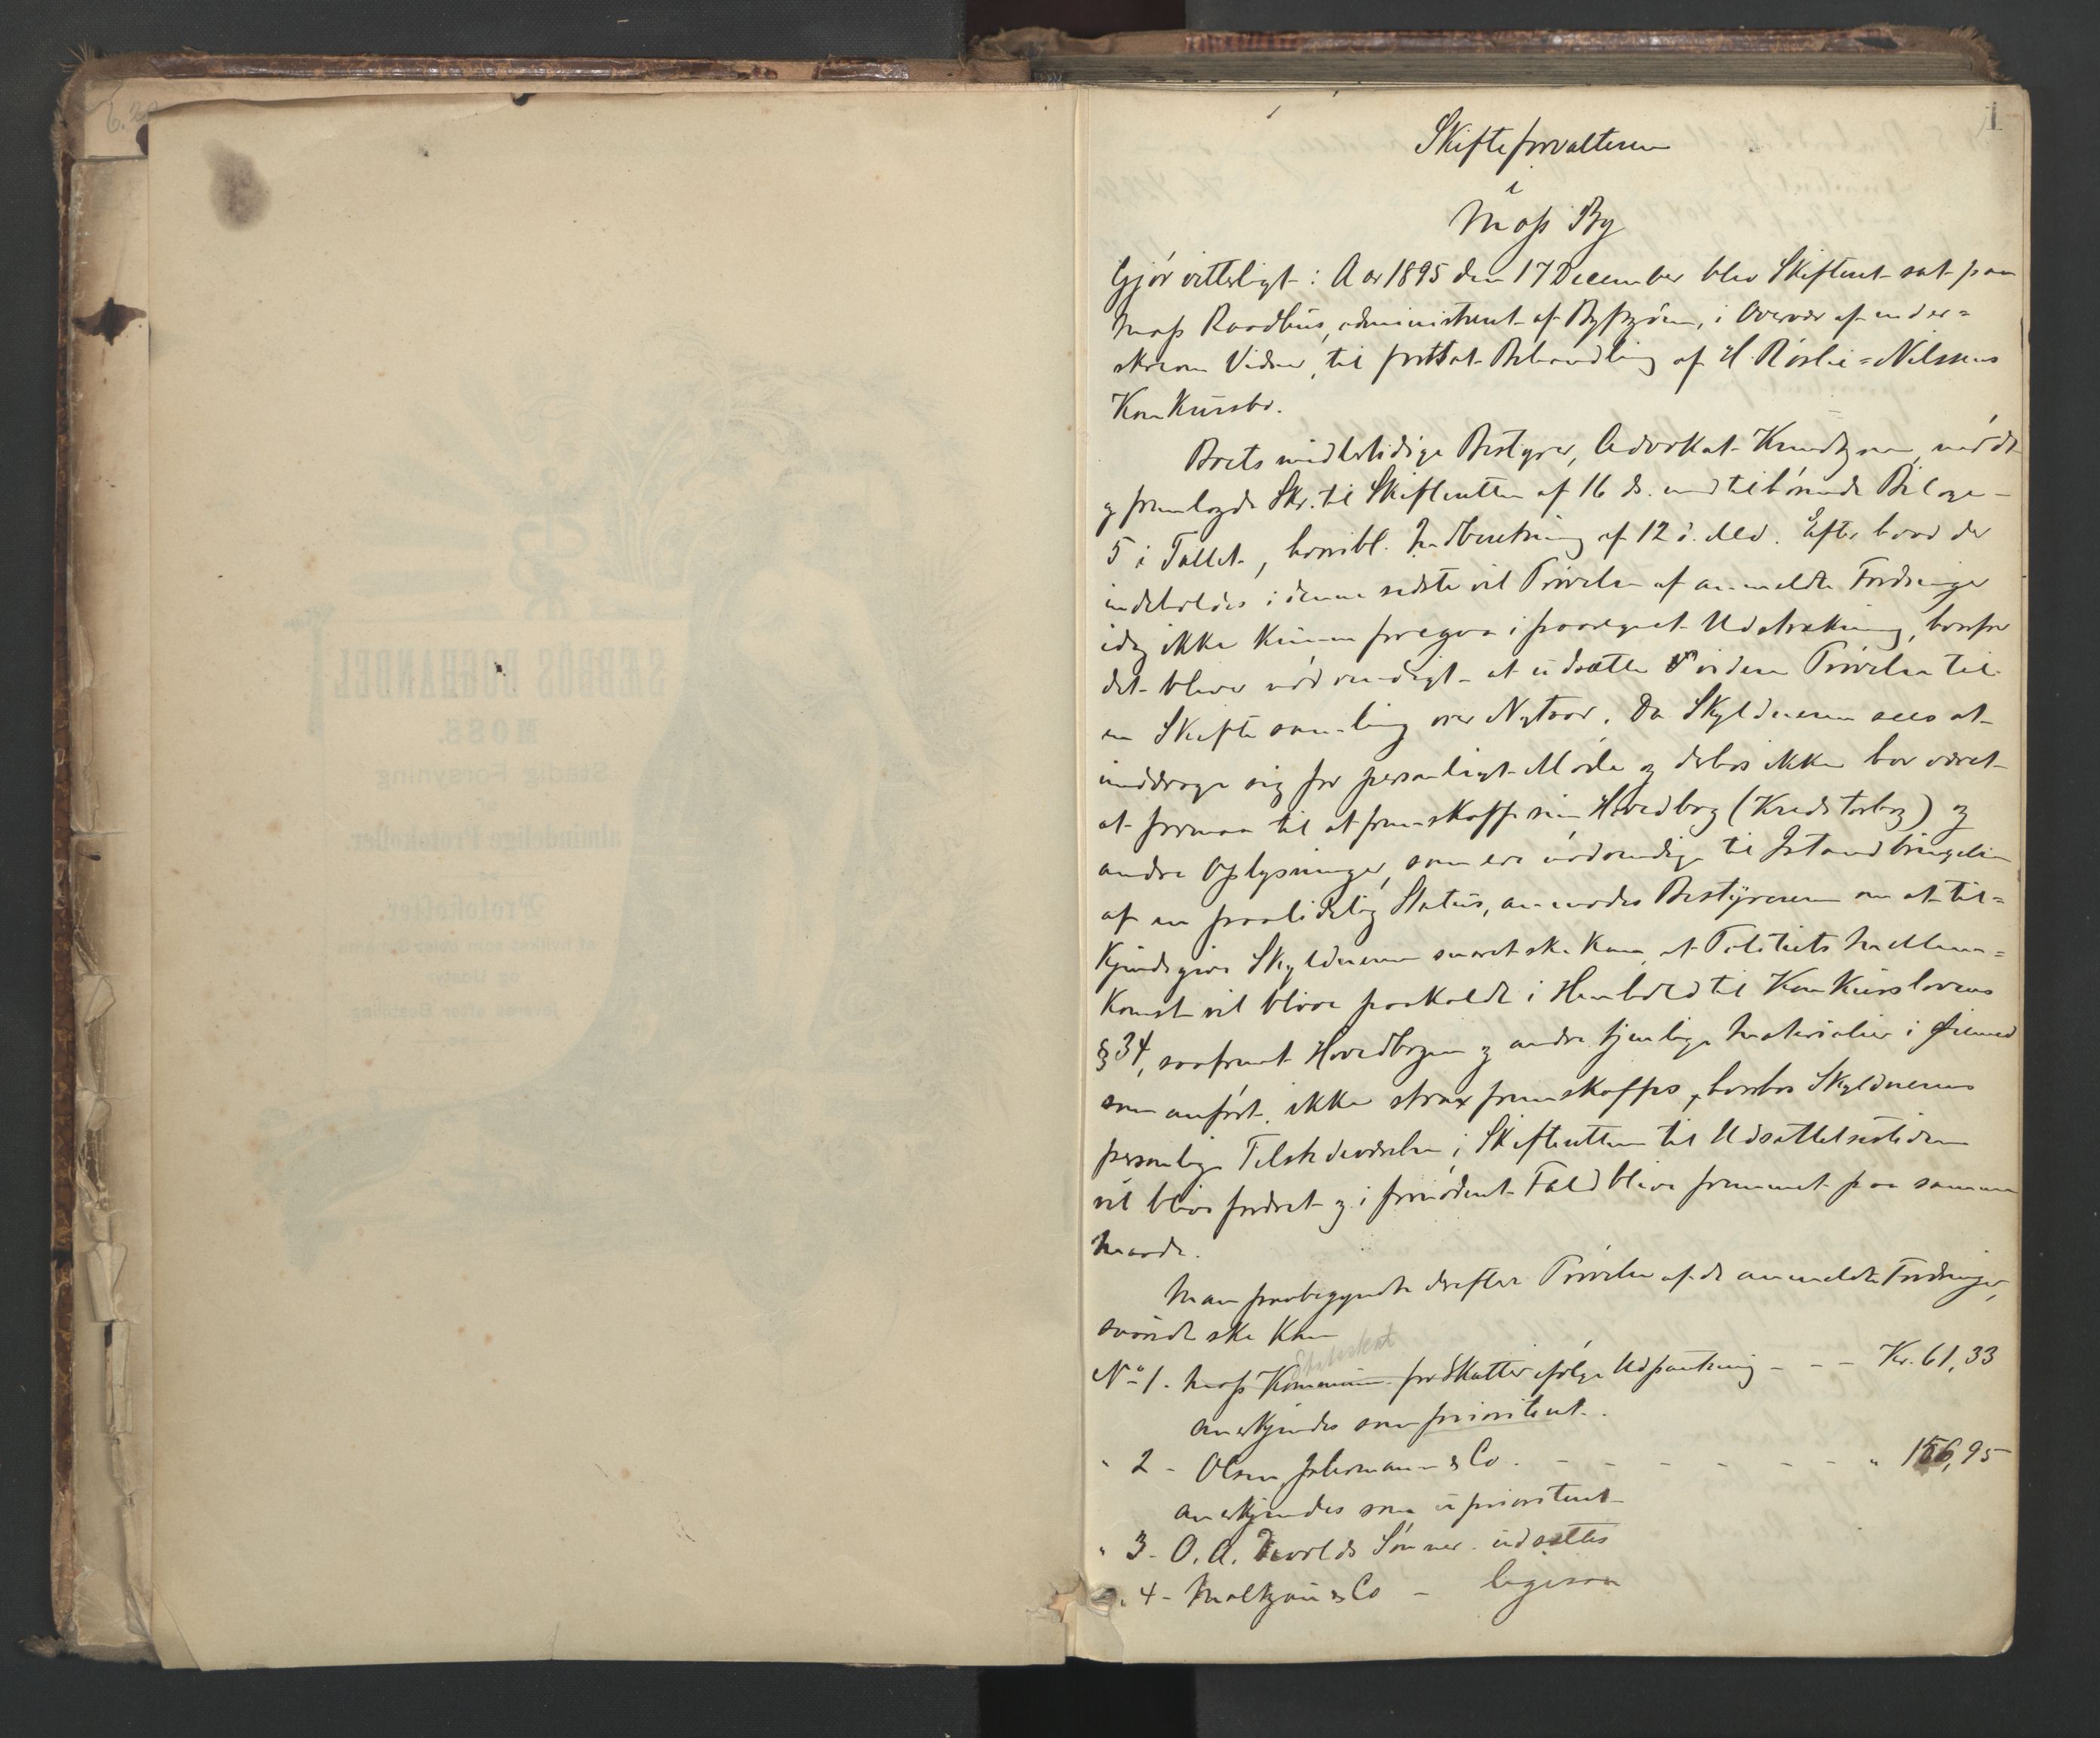 1
Skifteforvalteren
i
Moss By
Gjør vitterligt: Aar 1895 den 17 December blev Skifteret sat paa
Moss Raadhus, administreret af Byfogden, i Overvær af under=
skrevne Vidner, til fortsat Behandling af H. Røslie=Nilssens
Konkursbo.
Boets midlertidige Bestyrer, Advokat Knudtzon, mødte
og fremlagde Skr. til Skifteretten af 16 ds. med tilhørende Bilage -
5 i Tallet, hvoribl. Indberetning af 12 d. Md. Efter hvad der
indeholdes i denne sidste vil Prøvelse af anmeldte Fordringer
idag ikke kunne foregaa i paaregnet Udstrækning, hvorfor
det bliver nødvendigt at udsætte videre Prøvelse til
en Skiftesamling over Nytaar. Da Skyldneren sees at
unddrage sig for personligt Møde og derhos ikke har været
at formaa til at fremskaffe sin Hovedbog (Kreditorbog) og
andre Oplysninger, som ere nødvendige til Istandbringelse
af en paalidelig Status, anmodes Bestyreren om at til=
kjendegive Skyldneren snarest ske kan, at Politiets Mellem=
komst vil blive paakaldt i Henhold til Konkurslovens
§ 34, saafremt Hovedbogen og andre tjenlige Materialier i Øiemed
som anført, ikke strax fremskaffes, hvorhos Skyldnerens
personlige Tilstedeværelse i Skifteretten til Udsættelsestiden
vil blive fordret og i fornødent Fald blive fremmet paa samme
Maade.
Man paabegyndte derefter Prøvelse af de anmeldte Fordringer,
saavidt ske kan
Statsskat
No 1. Moss Kommune for Skatter ifølge Udpantning - - - Kr. 61,33
anerkjendes som prioriteret.
" 2 - Olsen, Johannsen & Co. - - - - - - - " 156,95
anerkjendes som uprioriteret
" 3 - O. A. Devolds Sønner udsættes
" 4 - & Co - ligesaa
SÆBBÖS BOGHANDEL
MOSS.
Stadig Forsyning
almindelige Protokoller.
Protokoller.
af hvilket som helst Schema
og Udstyr
leveres efter Bestilling